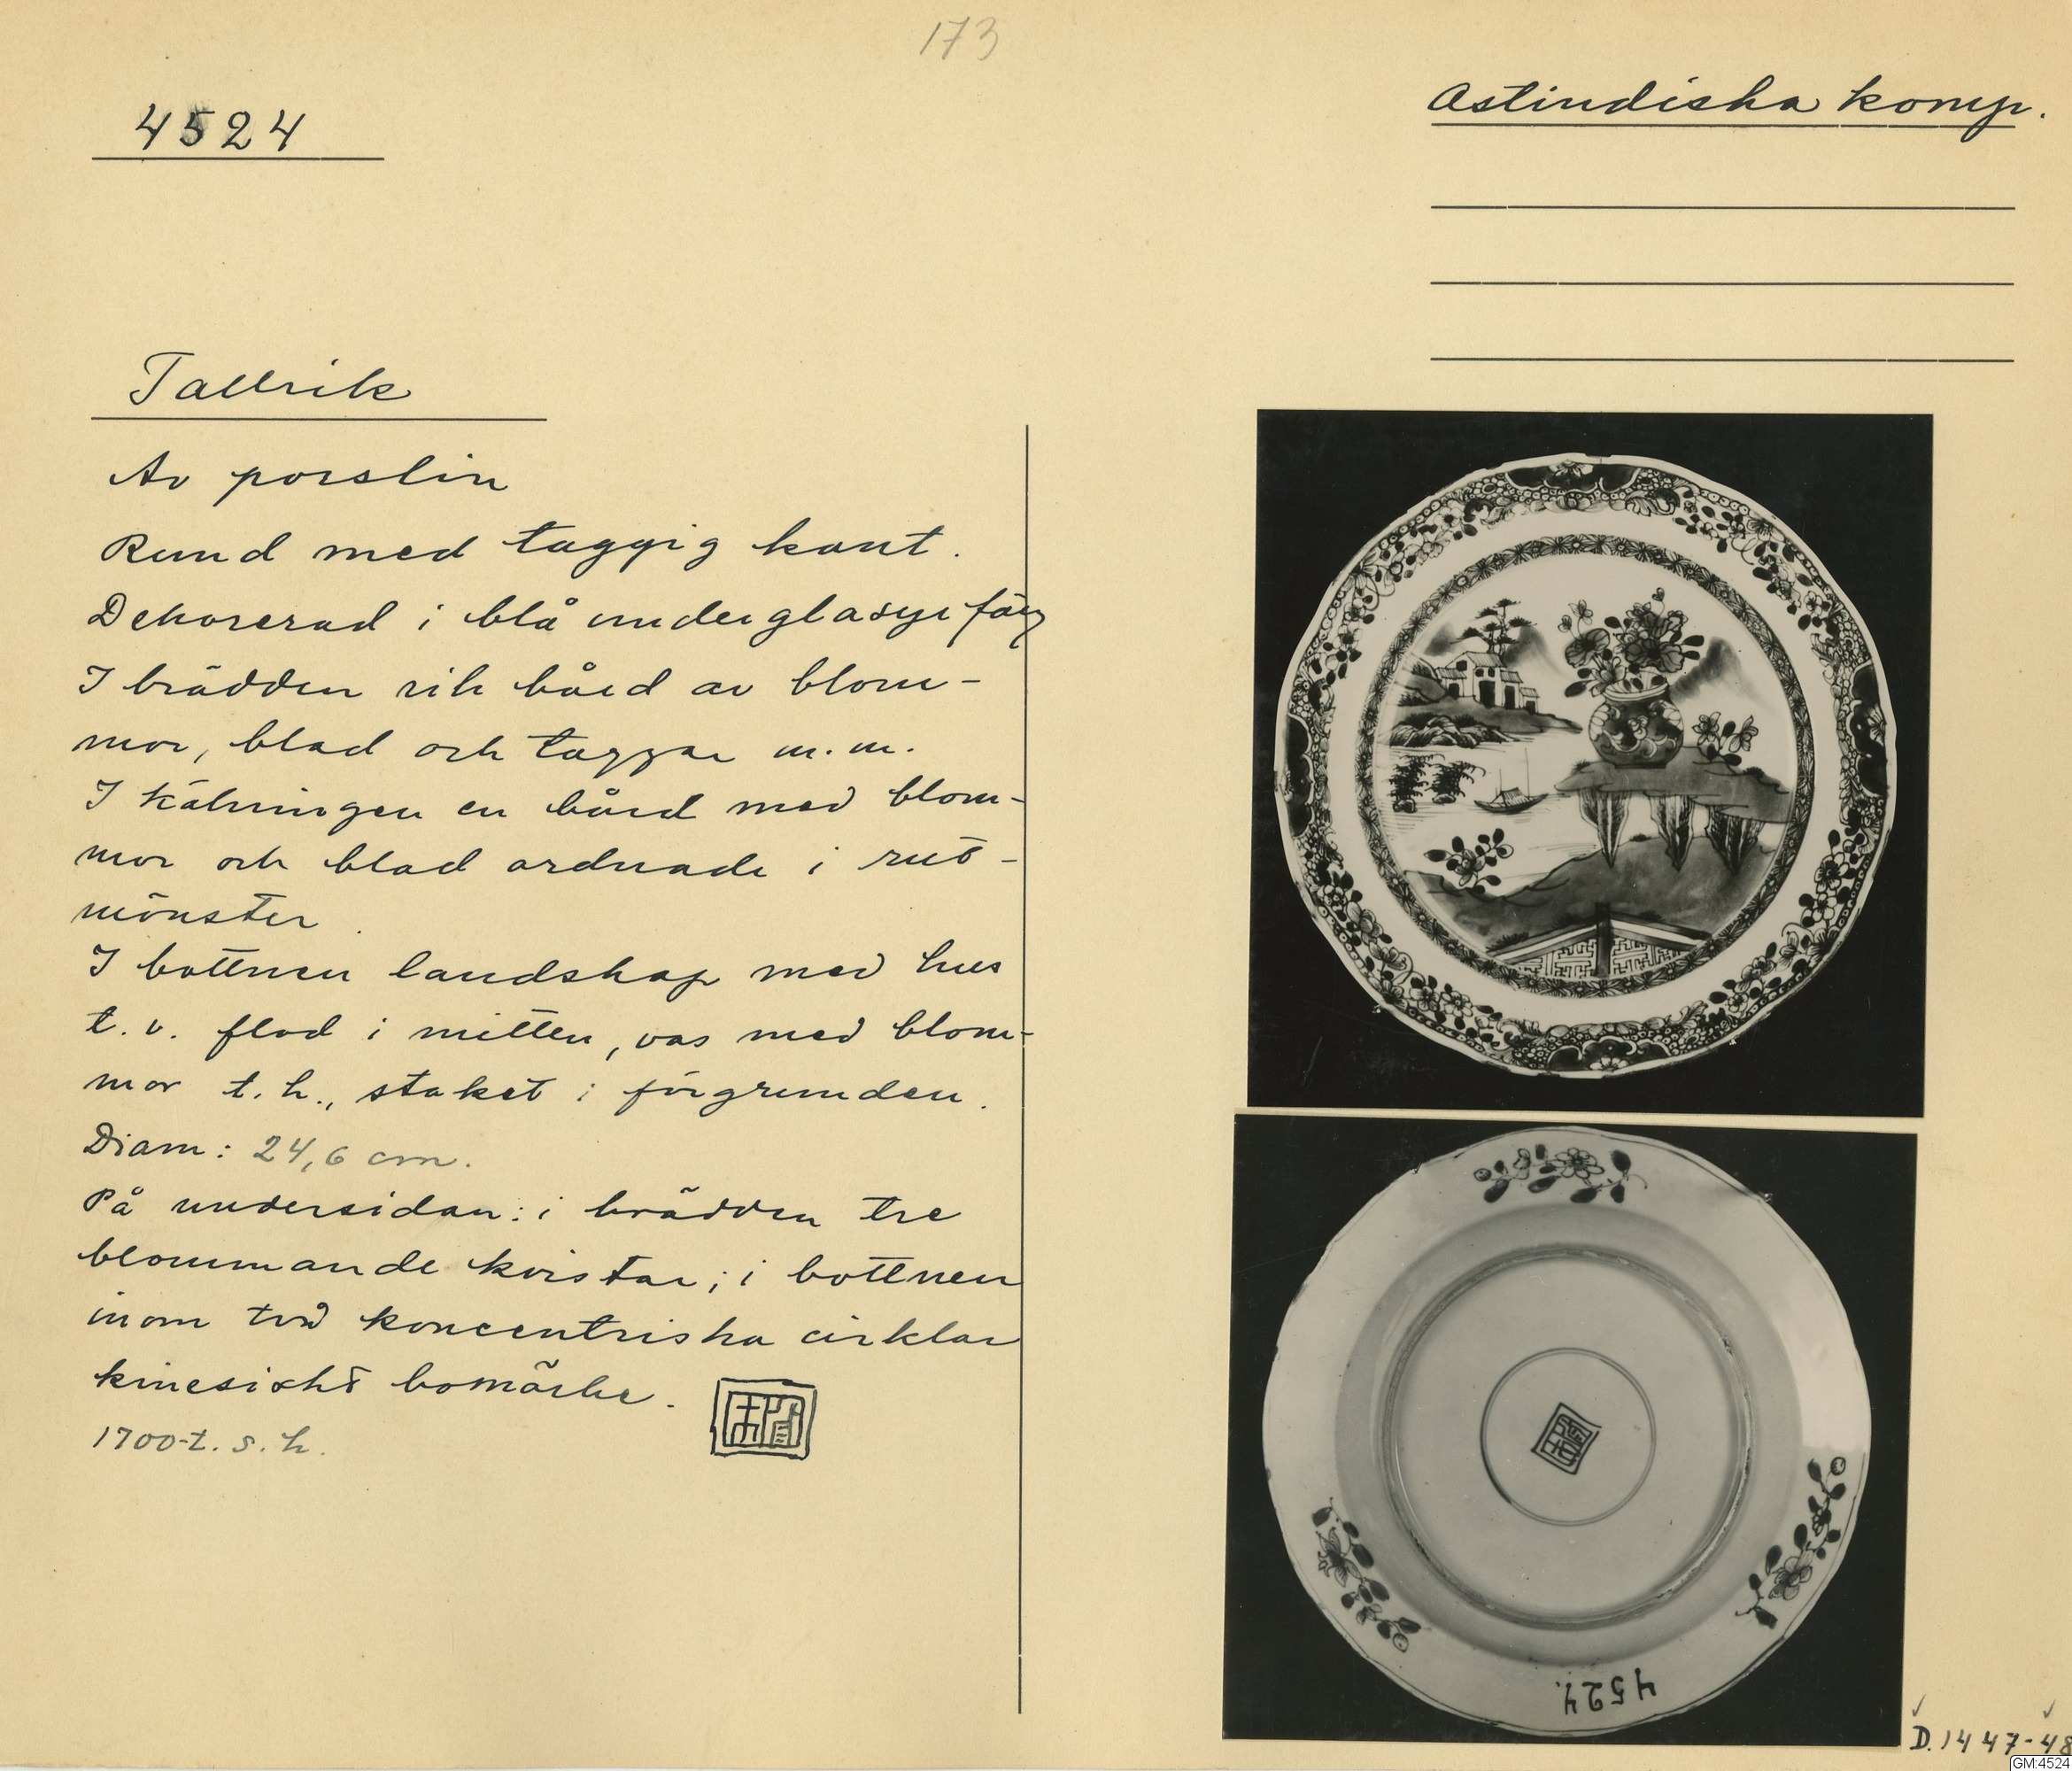 173
4524
Ostindiska komp.
Tallrik
Av porslin
Rund med taggig kant.
Dekorerad i blå underglasyrfärg
I brädden rik bård av blom-
mor, blad och taggar m.m.
I kälningen en bård med blom-
mor och blad ordnade i rut-
mönster.
I bottnen landskap med hus
t.v. flod i mitten, vas med blom-
mor t.h., staket i förgrunden.
Diam: 24,6 cm.
På undersidan: i brädden tre
blommande kvistar; i bottnen
inom två koncentriska cirklar
kinesiskt bomärke.
1700-t. s. h.
4524.
D. 1447-48
GM:4524